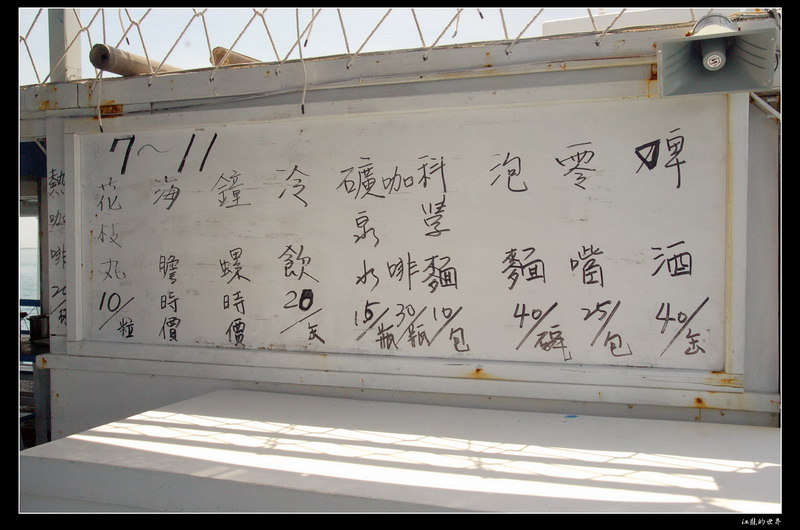 7~11
啤酒 40/缶
零嘴 25/包
泡麵 40/碗
科學麵 10/包
咖啡 30/瓶
礦泉水 15/瓶
冷飲 20/缶
鐘螺 時價
海膽 時價
花枝丸 10/粒
熱咖啡 20/
江龍的世界